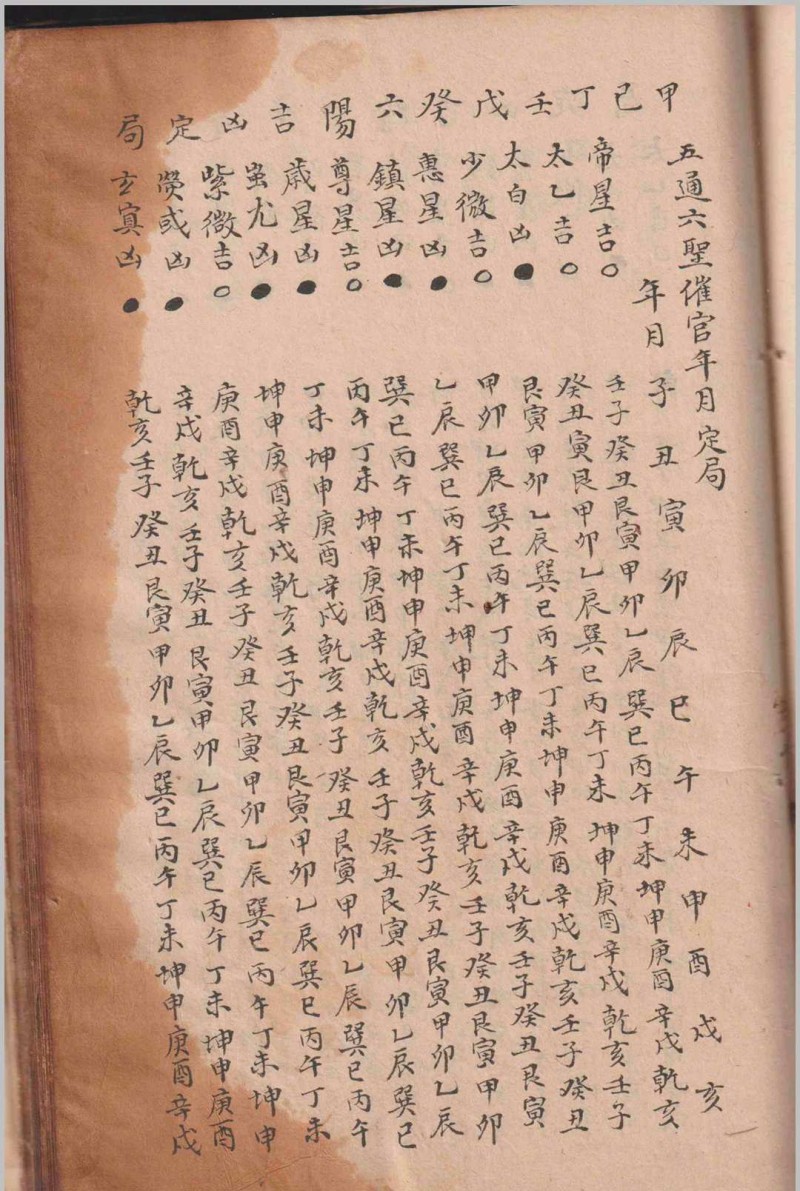 甲己丁壬戊癸六陽吉凶定局
五通六聖催官年月定局
年月 子丑寅卯辰巳午未申酉戌亥
帝星吉○ 壬子癸丑艮寅甲卯乙辰巽巳丙午丁未坤申庚酉辛戌乾亥
太乙吉○ 癸丑寅艮甲卯乙辰巽巳丙午丁未坤申庚酉辛戌乾亥壬子
太白凶● 艮寅甲卯乙辰巽巳丙午丁未坤申庚酉辛戌乾亥壬子癸丑
少微吉○ 甲卯乙辰巽巳丙午丁未坤申庚酉辛戌乾亥壬子癸丑艮寅
惠星凶● 乙辰巽巳丙午丁未坤申庚酉辛戌乾亥壬子癸丑艮寅甲卯
鎮星凶● 巽巳丙午丁未坤申庚酉辛戌乾亥壬子癸丑艮寅甲卯乙辰
尊星吉○ 丙午丁未坤申庚酉辛戌乾亥壬子癸丑艮寅甲卯乙辰巽巳
歲星凶● 丁未坤申庚酉辛戌乾亥壬子癸丑艮寅甲卯乙辰巽巳丙午
蚩尤凶● 坤申庚酉辛戌乾亥壬子癸丑艮寅甲卯乙辰巽巳丙午丁未
紫微吉○ 庚酉辛戌乾亥壬子癸丑艮寅甲卯乙辰巽巳丙午丁未坤申
熒或凶● 辛戌乾亥壬子癸丑艮寅甲卯乙辰巽巳丙午丁未坤申庚酉
玄冥凶● 乾亥壬子癸丑艮寅甲卯乙辰巽巳丙午丁未坤申庚酉辛戌